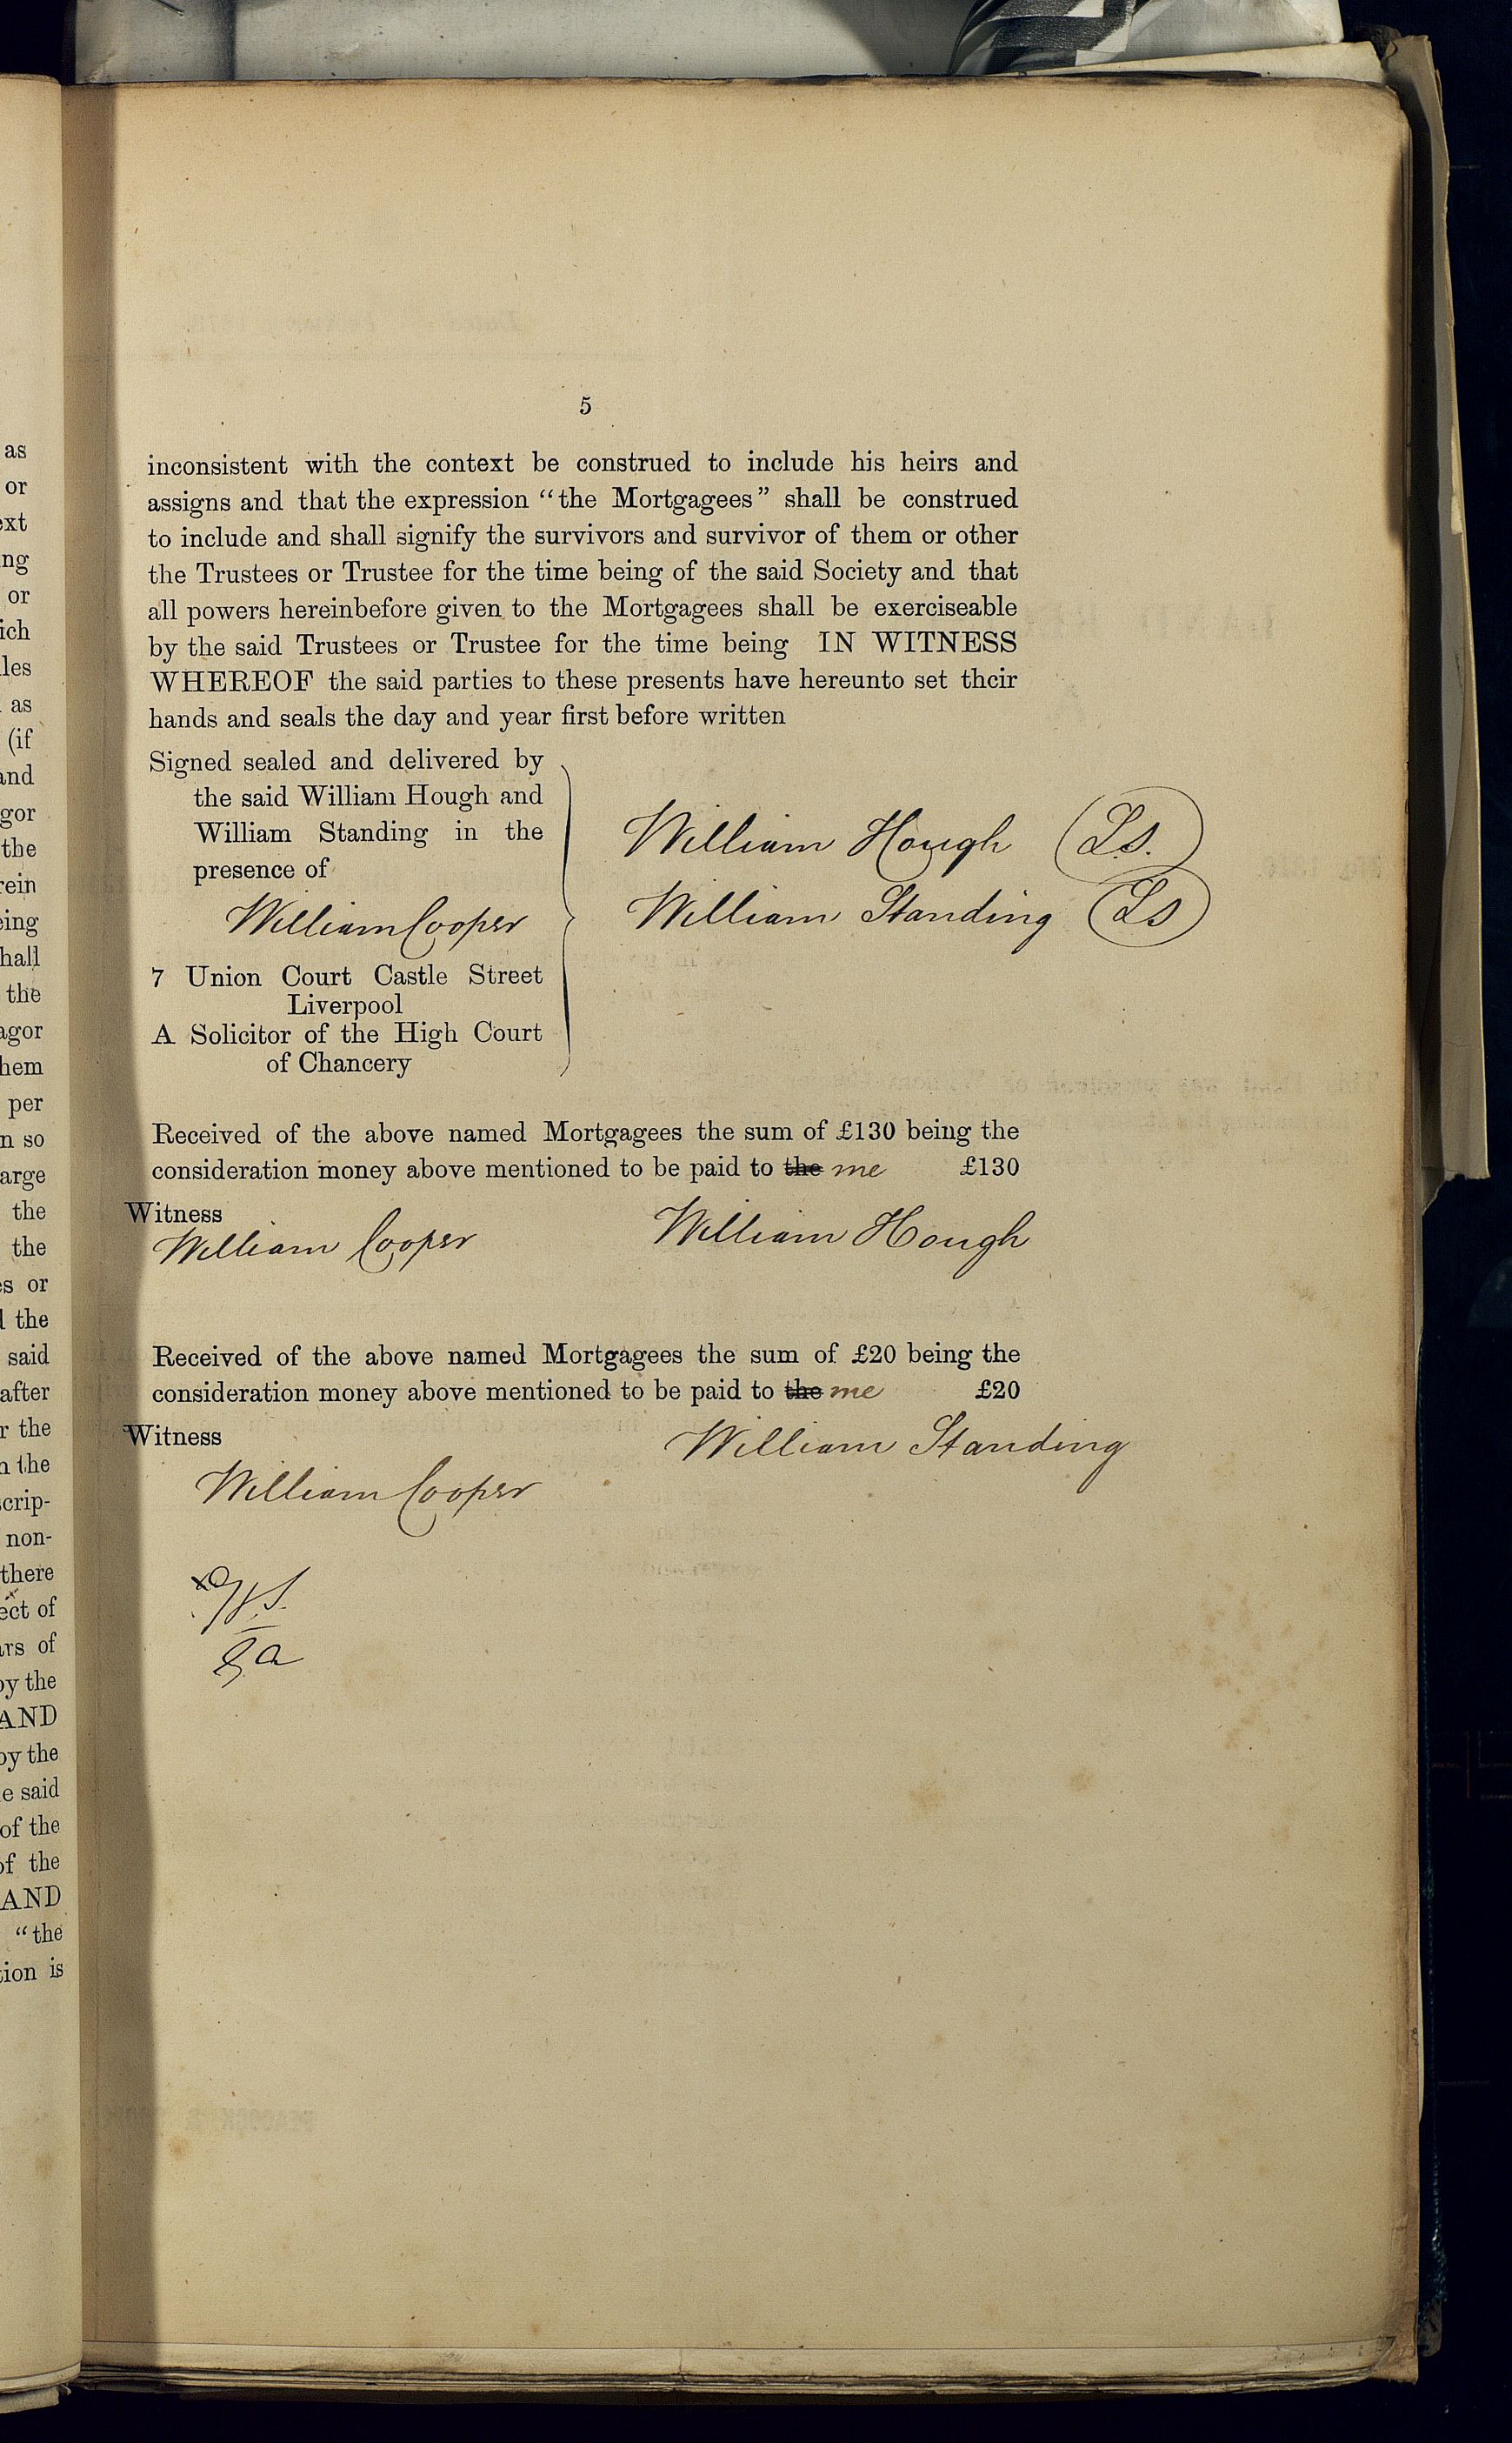 5
inconsistent with the context be construed to include his heirs and
assigns and that the expression “the Mortgagees” shall be construed
to include and shall signify the survivors and survivor of them or other
the Trustees or Trustee for the time being of the said Society and that
all powers hereinbefore given to the Mortgagees shall be exerciseable
by the said Trustees or Trustee for the time being IN WITNESS
WHEREOF the said parties to these presents have hereunto set their
hands and seals the day and year first before written
Signed sealed and delivered by
the said William Hough and
William Standing in the
presence of
William Cooper
7 Union Court Castle Street
Liverpool
A Solicitor of the High Court
of Chancery
William Hough L.s.
William Standing Ls
Received of the above named Mortgagees the sum of £130 being the
consideration money above mentioned to be paid to the me £130
Witness
William Cooper
William Hough
Received of the above named Mortgagees the sum of £20 being the
consideration money above mentioned to be paid to the me £20
Witness
William Standing
William Cooper
as
or
ext
ng
or
ich
les
as
(if
and
gor
the
rein
eing
hall
the
agor
hem
per
n so
arge
the
the
es or
d the
said
after
r the
n the
scrip-
non-
there
ect of
ars of
by the
AND
by the
e said
of the
of the
AND
“the
tion is